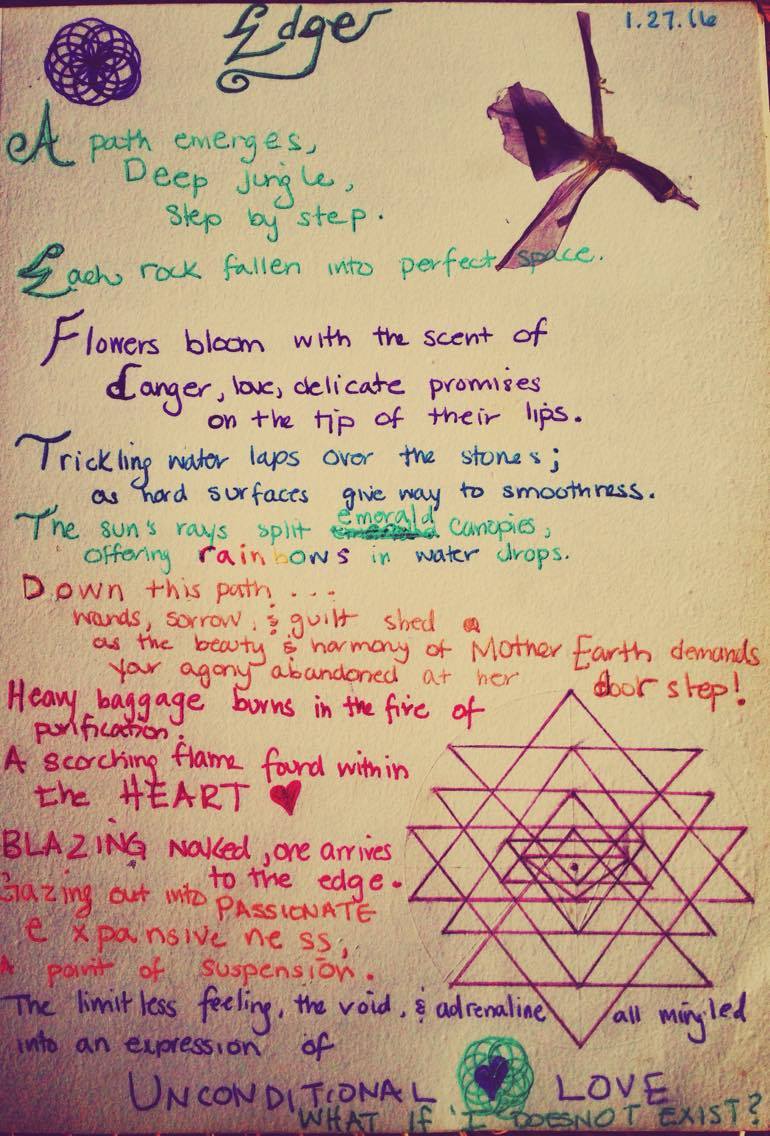 Edger
1.27.16
A path emerges,
Deep jungle,
Step by step.
Each rock fallen into perfect space.
Flowers bloom with the scent of
danger, love, delicate promises
on the tip of their lips.
Trickling water laps over the stones;
as hard surfaces give way to smoothness.
The sun's rays split emerald canopies,
offering rainbows in water drops.
Down this path...
wands, sorrow, & guilt shed
as the beauty & harmony of Mother Earth demands
your agony abandoned at her door step!
Heavy baggage burns in the fire of
purification.
A scorching flame found within
the HEART
BLAZING Naked, one arrives
to the edge.
Gazing out into PASSIONATE
expansiveness,
A point of suspension.
The limitless feeling, the void, & adrenaline all mingled
into an expression of
UNCONDITIONAL LOVE
WHAT IF 'I' DOES NOT EXIST?